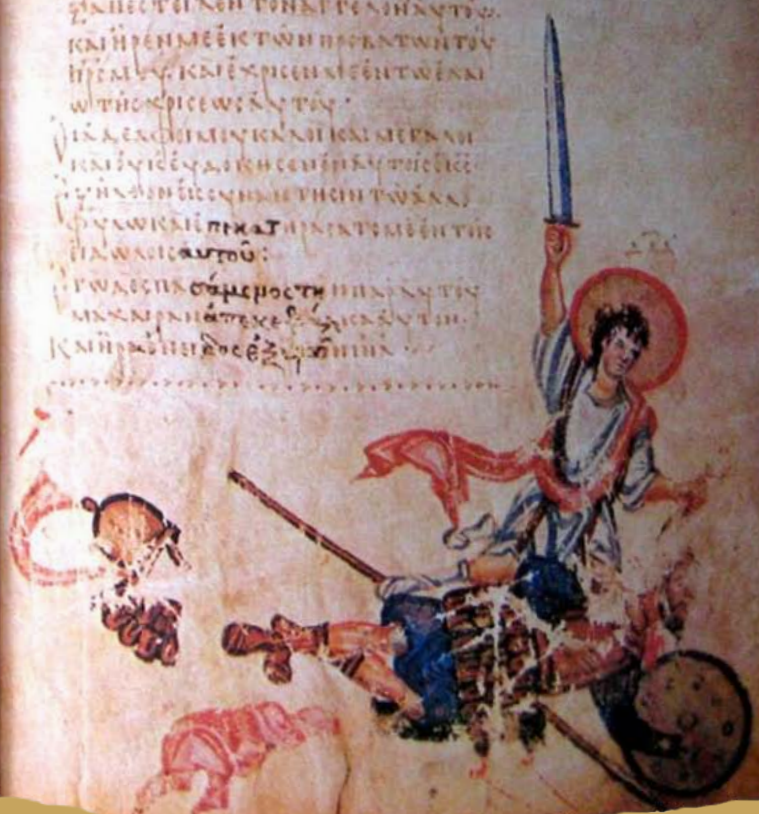 ΤΟΝ ΑΓΓΕΛΟΝ ΑΥΤΟΥ
ΚΑΙ ΗΡΕΝ ΜΕ ΕΚ ΤΩΝ ΠΡΟΒΑΤΩΝ ΤΟΥ
ΠΡΣ ΜΟΥ· ΚΑΙ ΕΧΡΙΣΕΝ ΜΕ ΕΝ ΤΩ ΕΛΑΙ
Ω ΤΗΣ ΧΡΙΣΕΩΣ ΑΥΤΟΥ·
ΟΙ ΑΔΕΛΦΟΙ ΜΟΥ ΚΑΛΟΙ ΚΑΙ ΜΕΓΑΛΟΙ
ΚΑΙ ΟΥΚ ΕΥΔΟΚΗΣΕΝ ΕΝ ΑΥΤΟΙΣ
ΕΞΗΛΘΟΝ ΕΙΣ ΣΥΝΑΝΤΗΣΙΝ ΤΩ ΑΛΛΟ
ΦΥΛΩ ΚΑΙ ΕπικατΗΡΑΣΑΤΟ ΜΕ ΕΝ ΤΟΙΣ
ΕΙΔΩΛΟΙΣ αυτοῦ:
ΕΓΩ ΔΕ ΣΠΑσάμενος τηΝ ΠΑΡ ΑΥΤΟΥ
ΜΑΧΑΙΡΑΝ ΑΥΤΟΝ·
ΚΑΙ ΗΡΑ ΟΝΕΙδος ἐξ